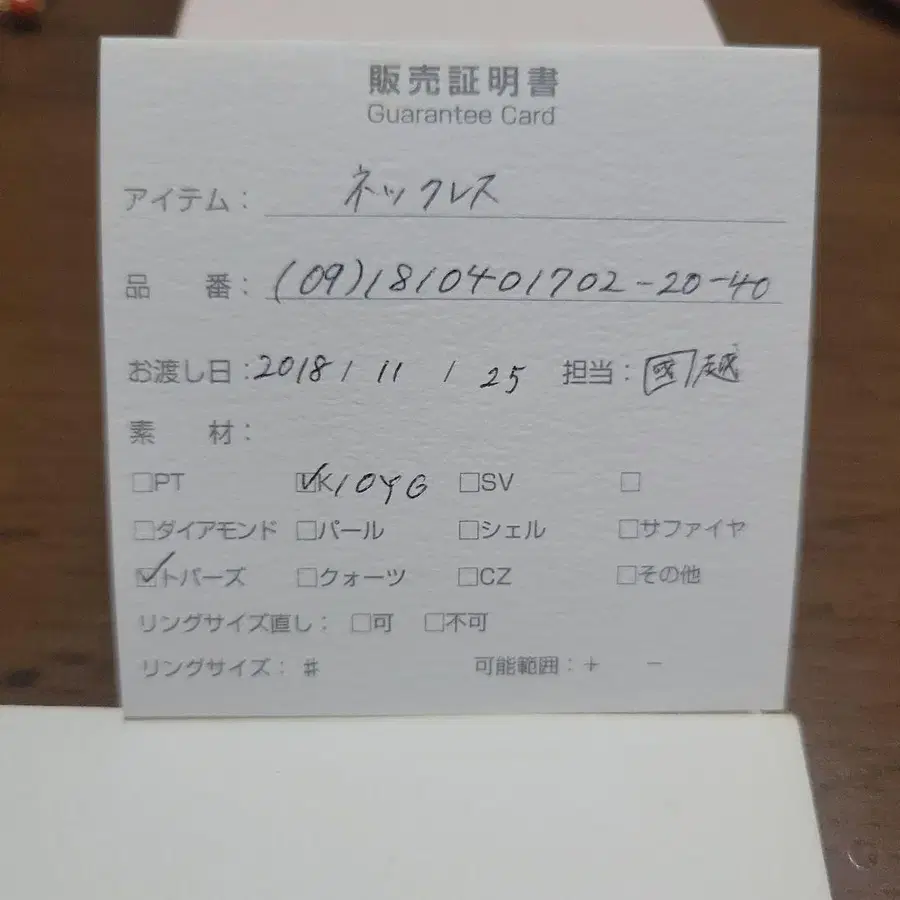 販売証明書
Guarantee Card
アイテム: ネックレス
品 番: (09)1810401702-20-40
お渡し日:2018/ 11 / 25 担当: 越
素 材:
□PT ☑K10YG □SV □
□ダイアモンド □パール □シェル □サファイヤ
☑トパーズ □クォーツ □CZ □その他
リングサイズ直し: □可 □不可
リングサイズ: # 可能範囲:+ −